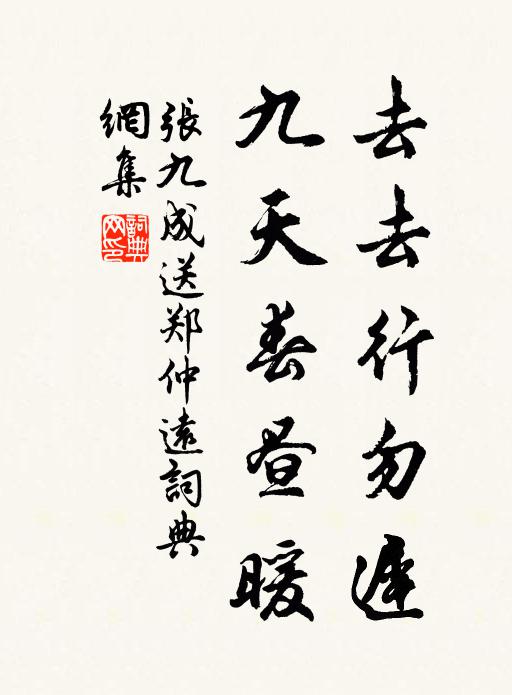 去去行勿遲
九天春昼暖
張九成送郑仲遠詞典
網集
詞典
网印